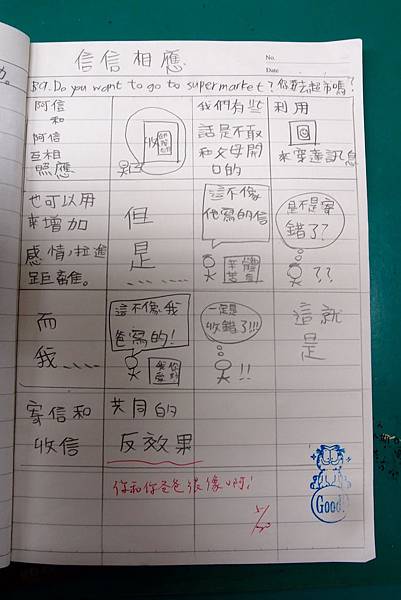 信信相應
No.
Date
59. Do you want to go to supermarket? 你要去超市嗎?
阿信
和
阿信
互相
照應
我們有些
話是不敢
和父母開
口的
利用
來穿達訊息
也可以用
來增加
感情,拉進
距離。
但
是
.....
這不像
他寫的信
是不是寄
錯了??
??
而
我....
這不像我
爸寫的!
一定是
收錯了!!!
!!
這就
是
寄信和
收信
共同的
反效果
你和你爸爸很像啊!
Good!